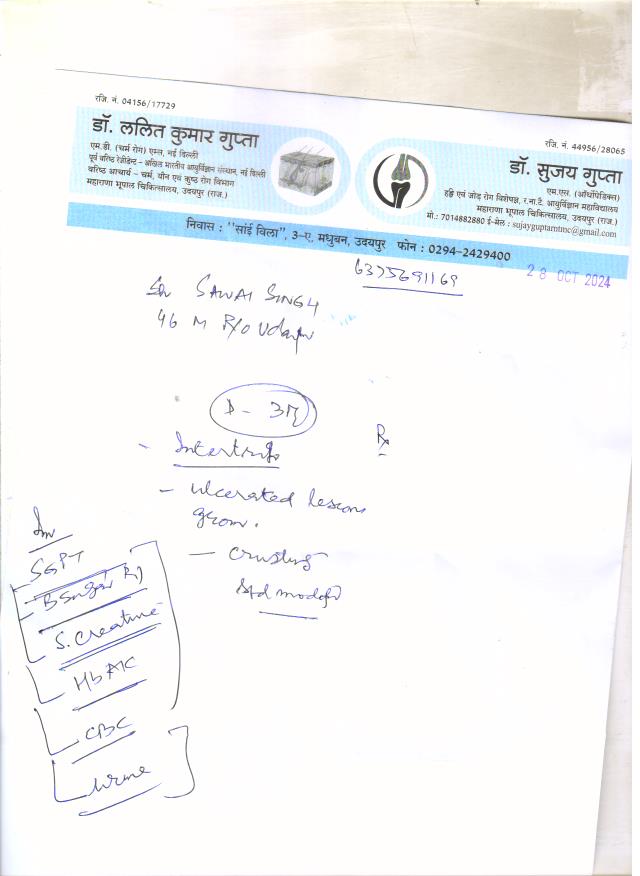 रजि. नं. 04156/17729
डॉ. ललित कुमार गुप्ता
एम.डी. (चर्म रोग) एम्स, नई दिल्ली
पूर्व वरिष्ठ रेजीडेन्ट - अखिल भारतीय आयुर्विज्ञान संस्थान, नई दिल्ली
वरिष्ठ आचार्य - चर्म, यौन एवं कुष्ठ रोग विभाग
महाराणा भूपाल चिकित्सालय, उदयपुर (राज.)
रजि. नं. 44956/28065
डॉ. सुजय गुप्ता
एम.एस. (ऑर्थोपेडिक्स)
हड्डि एवं जोड़ रोग विशेषज्ञ, र.ना.टै. आयुर्विज्ञान महाविद्यालय
महाराणा भूपाल चिकित्सालय, उदयपुर (राज.)
मो.: 7014882880 ई-मेल : sujayguptarntmc@gmail.com
निवास : "सांई विला", 3-ए, मधुबन, उदयपुर फोन : 0294-2429400
6375691169
28 OCT 2024
SAWAI SINGH
46 M R/O Udaipur
D - 3M
Rx
- Intertrigo
- ulcerated lesions
groin.
- crusting
SGPT
B Sugar R
S. Creatine
HbA1C
CBC
Urine